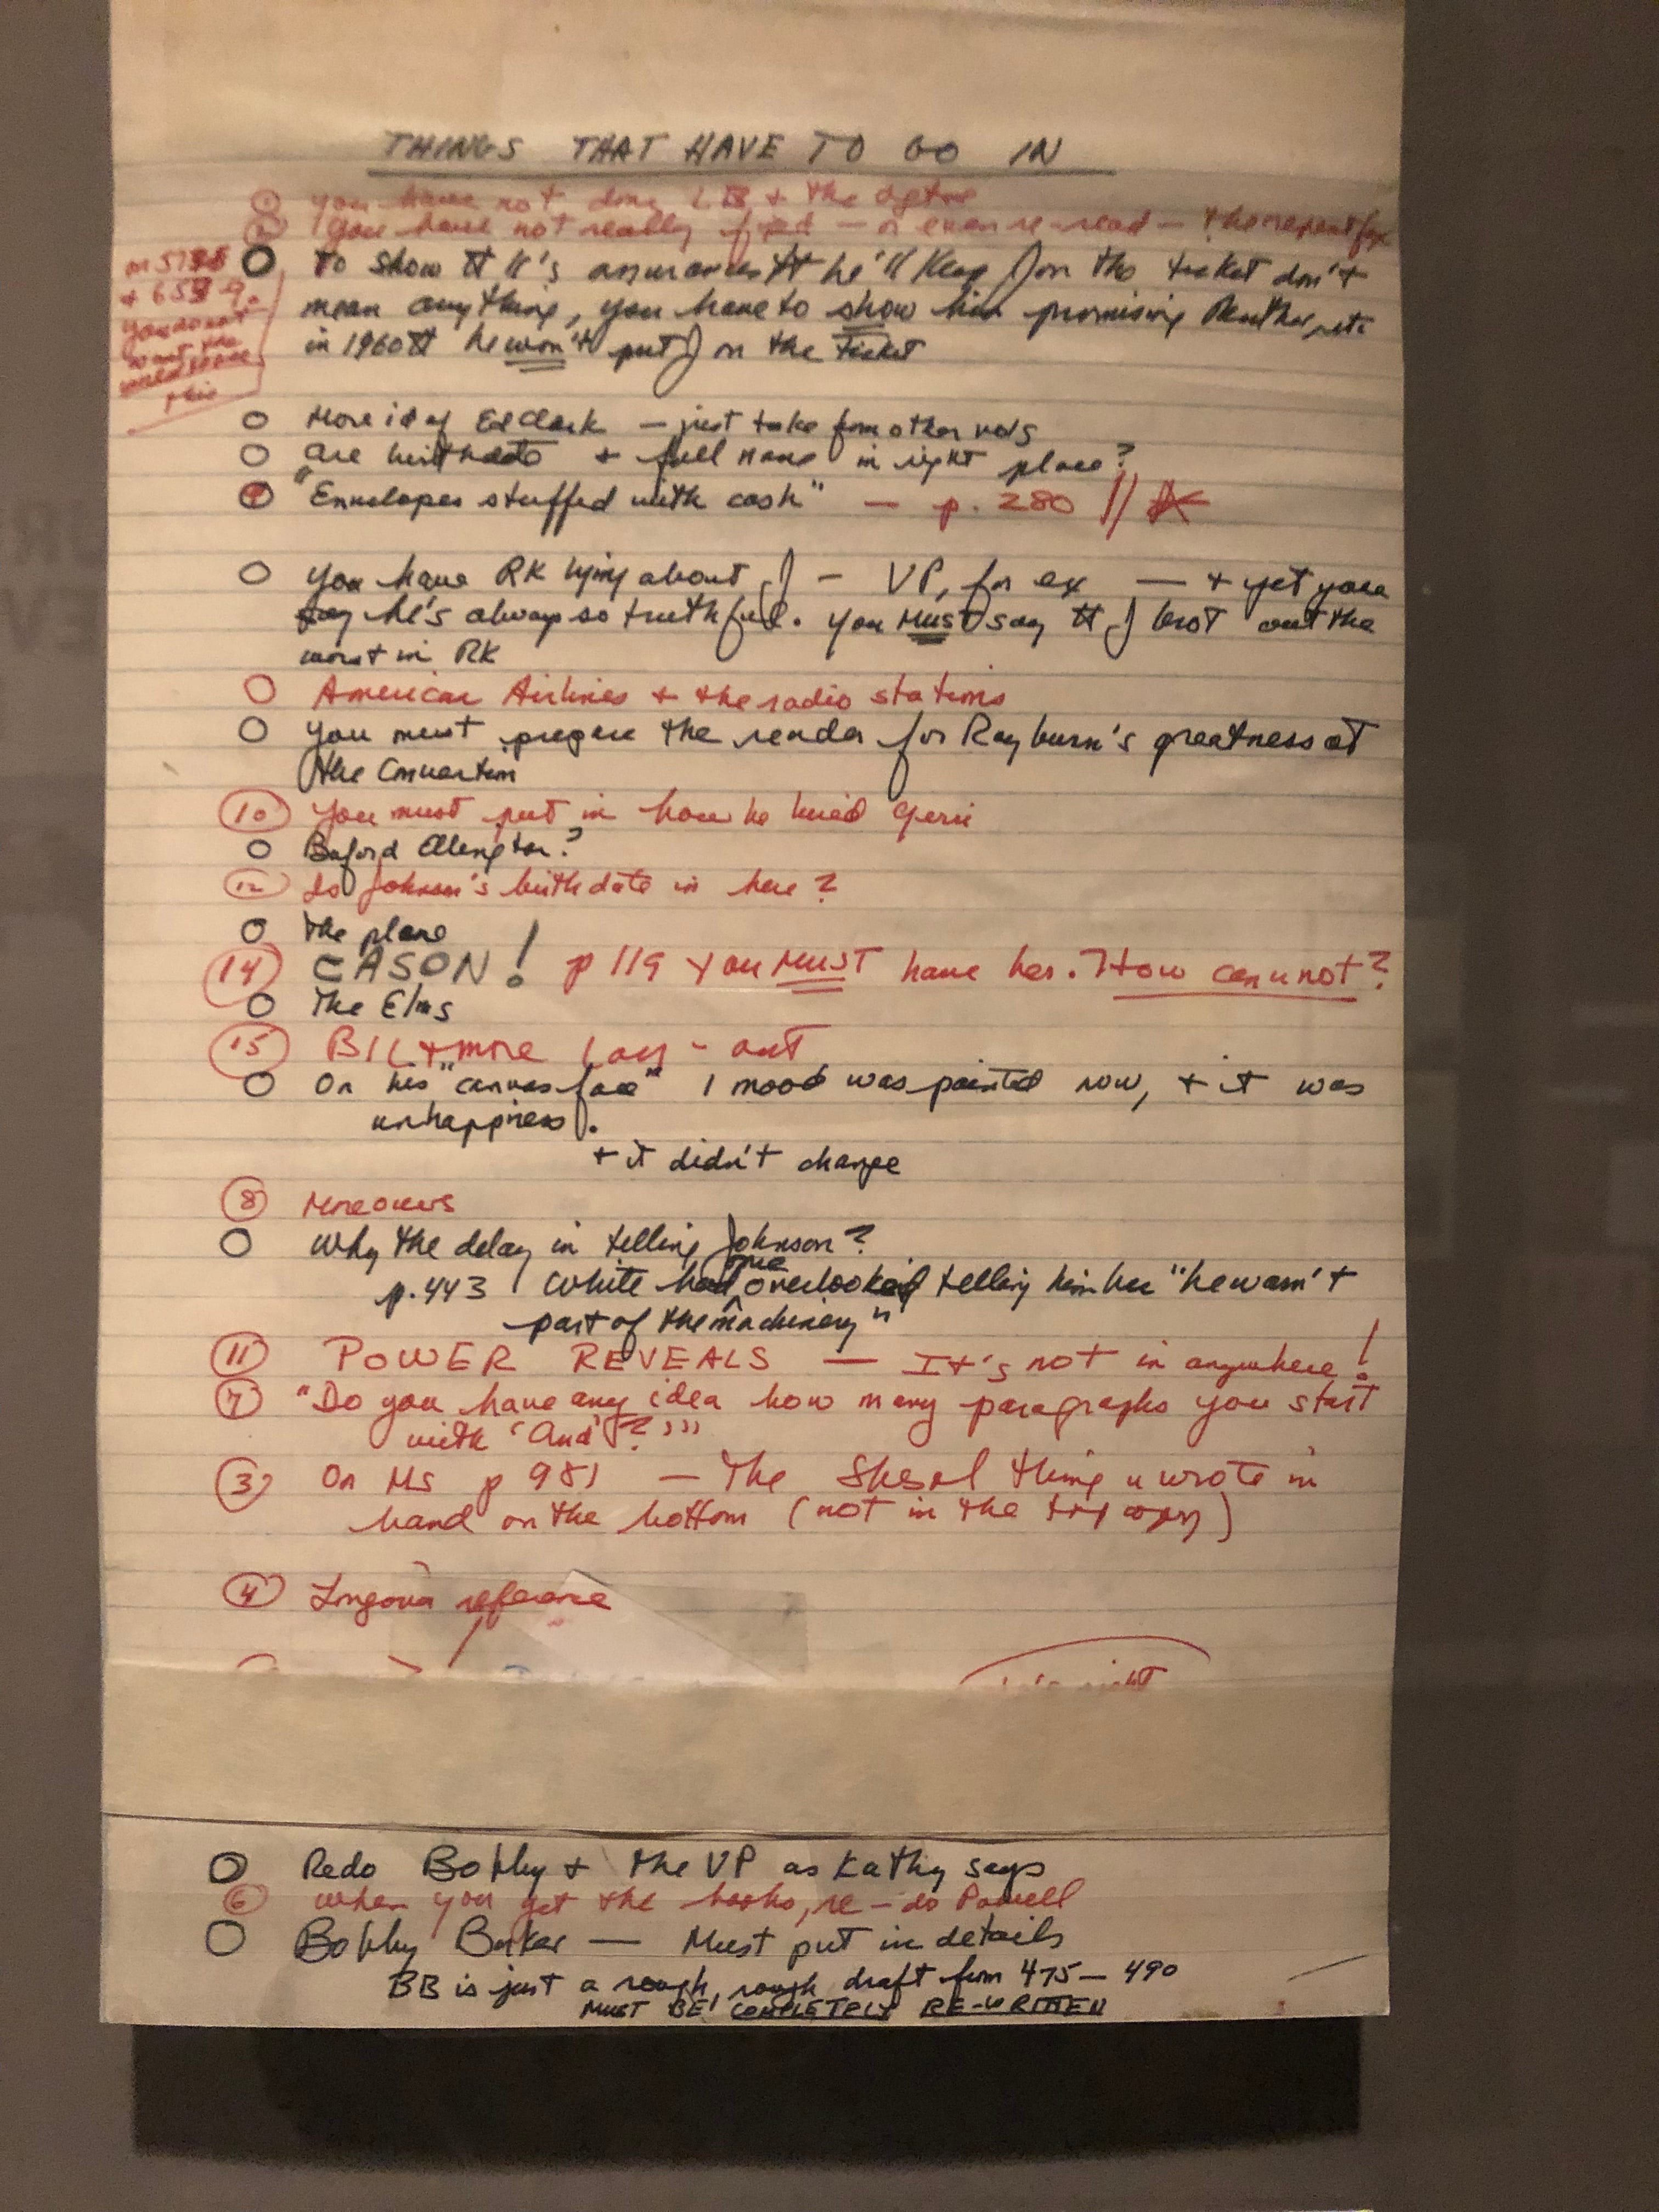 THINGS THAT HAVE TO GO IN
① you have not done LBJ + the
② you have not really fixed — or even re-read — the
on 5738
+ 6539.
you do not
want the
this
○ To show tt K's assurances tt he'll keep J on the ticket don't
mean anything, you have to show him promising Reuther, etc
in 1960 tt he won't put J on the ticket
○ More id of Ed Clark — just take from other vols
○ are birthdate + full name in right place?
"Envelopes stuffed with cash" — p. 280 //
○ you have RK lying about J — VP, for ex — + yet you
say he's always so truthful. You MUST say tt J brot out the
worst in RK
○ American Airlines + the radio stations
○ You must prepare the reader for Rayburn's greatness at
the Convention
⑩ You must put in how he hired Geri
○ Buford Ellington?
⑫ Is Johnson's birthdate in here?
○ The plane
⑭ CASON! p 119 you MUST have her. How can u not?
○ The Elms
⑮ Biltmore lay-out
○ On his "canvas face" 1 mood was painted now, + it was
unhappiness.
+ it didn't change
⑧ Moreovers
○ Why the delay in telling Johnson?
p. 443 White had one overlooked telling him bec "he wasn't
part of the machinery"
⑪ POWER REVEALS — It's not in anywhere!
⑦ "Do you have any idea how many paragraphs you start
with 'And'?"
③ On MS p 981 — The Shesol thing u wrote in
hand on the bottom (not in the typ copy)
④ Longoria reference
○ Redo Bobby + the VP as Kathy says
⑥ when you get the books, re-do Powell
○ Bobby Baker — Must put in details
BB is just a rough, rough draft from 475—490
MUST BE COMPLETELY RE-WRITTEN